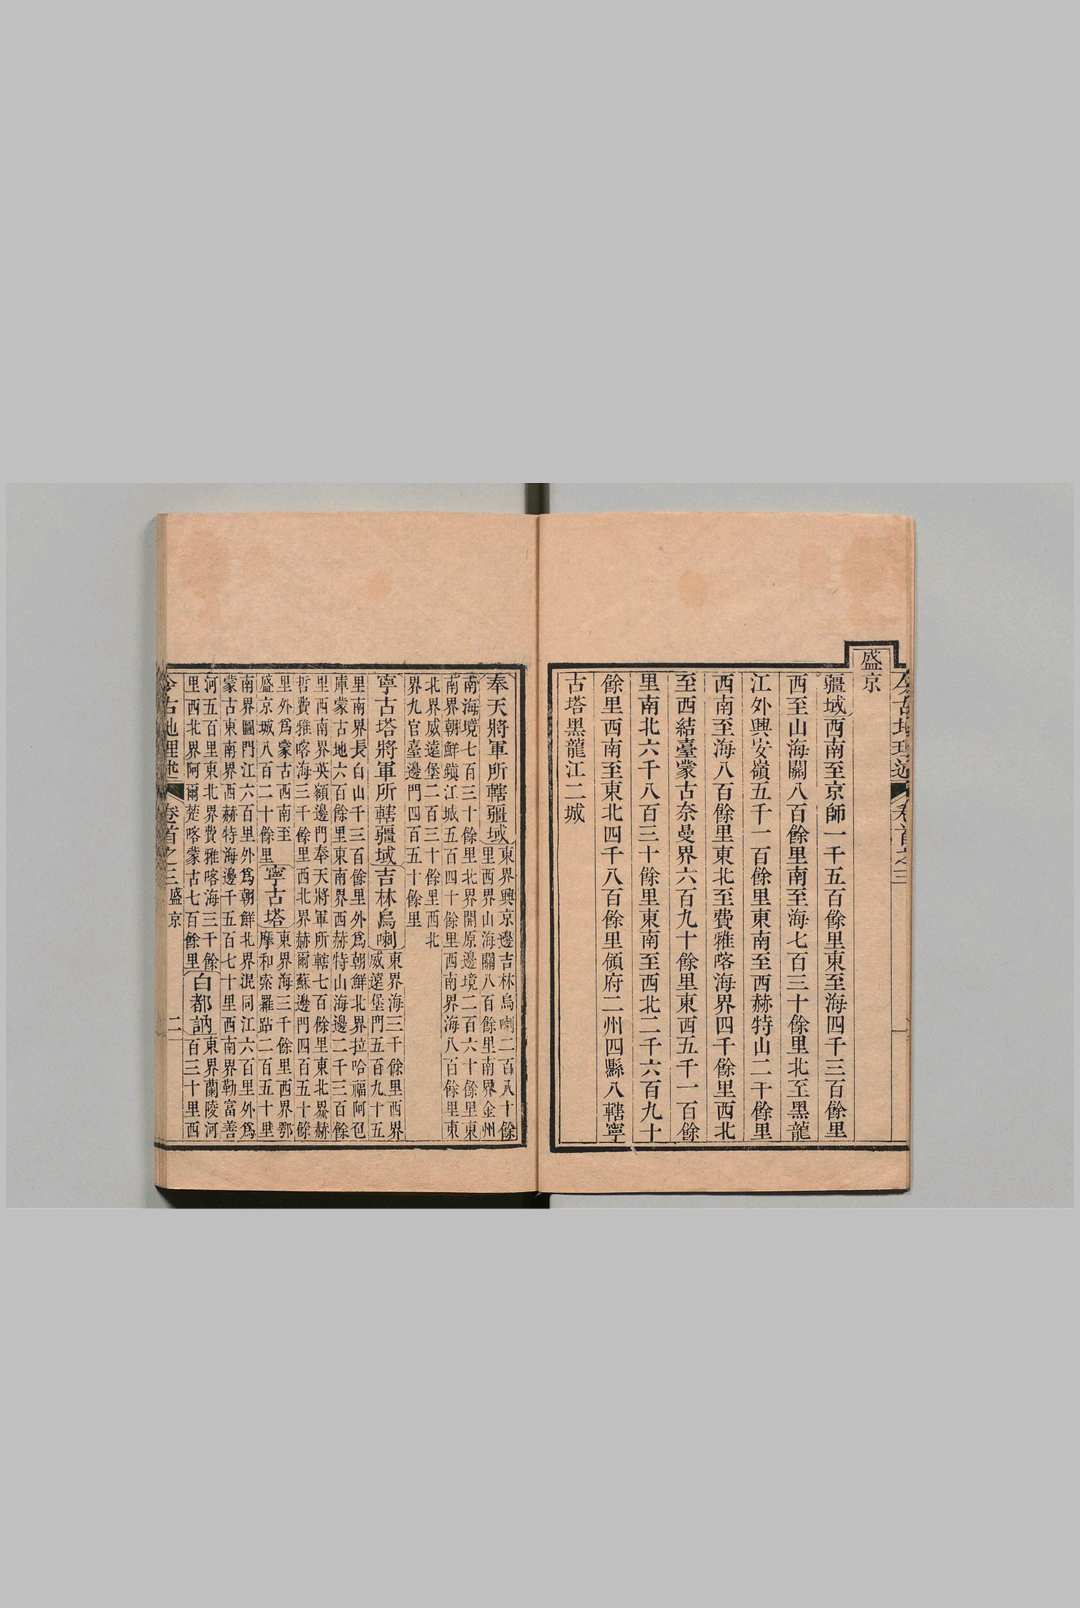 今古地理述 卷首之三
盛京
疆域西南至京師一千五百餘里東至海四千三百餘里
西至山海關八百餘里南至海七百三十餘里北至黑龍
江外興安嶺五千一百餘里東南至西赫特山二千餘里
西南至海八百餘里東北至費雅喀海界四千餘里西北
至西結臺蒙古奈曼界六百九十餘里東西五千一百餘
里南北六千八百三十餘里東南至西北二千六百九十
餘里西南至東北四千八百餘里領府二州四縣八轄寧
古塔黑龍江二城
奉天將軍所轄疆域東界興京邊吉林烏喇二百八十餘
里西界山海關八百餘里南界金州
南海境七百三十餘里北界開原邊境二百六十餘里東
南界朝鮮鎮江城五百四十餘里西南界海八百餘里東
北界威遠堡二百三十餘里西北
界九官臺邊門四百五十餘里
寧古塔將軍所轄疆域吉林烏喇東界海三千餘里西界
威遠堡門五百九十五
里南界長白山千三百餘里外爲朝鮮北界拉哈福阿色
庫蒙古地六百餘里東南界西赫特山海邊二千三百餘
里西南界英額邊門奉天將軍所轄七百餘里東北界赫
哲費雅喀海三千餘里西北界赫爾蘇邊門四百五十餘
里外爲蒙古西南至
盛京城八百二十餘里寧古塔東界海三千餘里西界鄂
摩和索羅跕二百五十里
南界圖門江六百里外爲朝鮮北界混同江六百里外爲
蒙古東南界西赫特海邊千五百七十里西南界勒富善
河五百里東北界費雅喀海三千餘
里西北界阿爾楚喀蒙古七百餘里白都訥東界蘭陵河
百三十里西
今古地理述 卷首之三 盛京 二